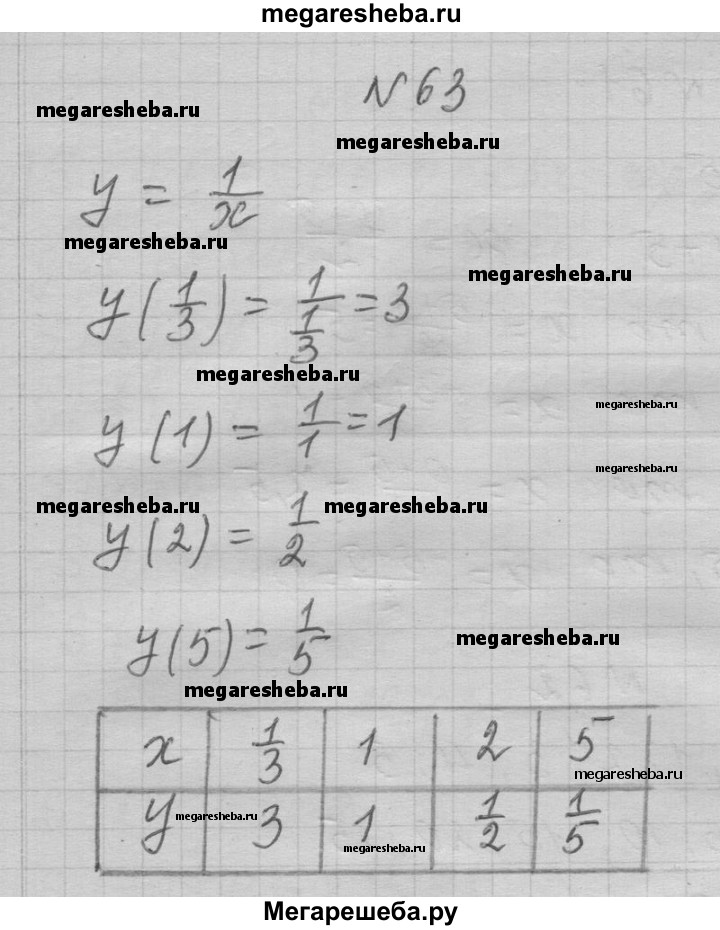 megaresheba.ru
N 63
megaresheba.ru
megaresheba.ru
y = 1/x
megaresheba.ru
megaresheba.ru
y(1/3) = 1/(1/3) = 3
megaresheba.ru
megaresheba.ru
y(1) = 1/1 = 1
megaresheba.ru
megaresheba.ru megaresheba.ru
y(2) = 1/2
y(5) = 1/5
megaresheba.ru
megaresheba.ru
x 1/3 1 2 5
megaresheba.ru
y 3 1 1/2 1/5
megaresheba.ru
megaresheba.ru
Мегарешеба.ру